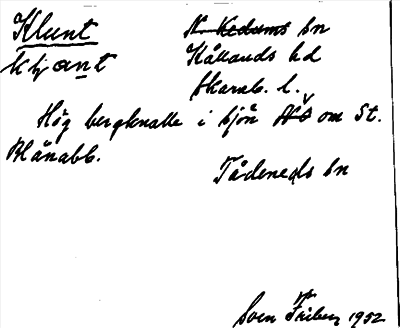 Klunt
N. Kedums sn
khjant
Kållands hd
Skarab. l.
Hög bergknalle i sjön NV om St.
Blånabb.
Tådeneds sn
Sven Friberg 1952